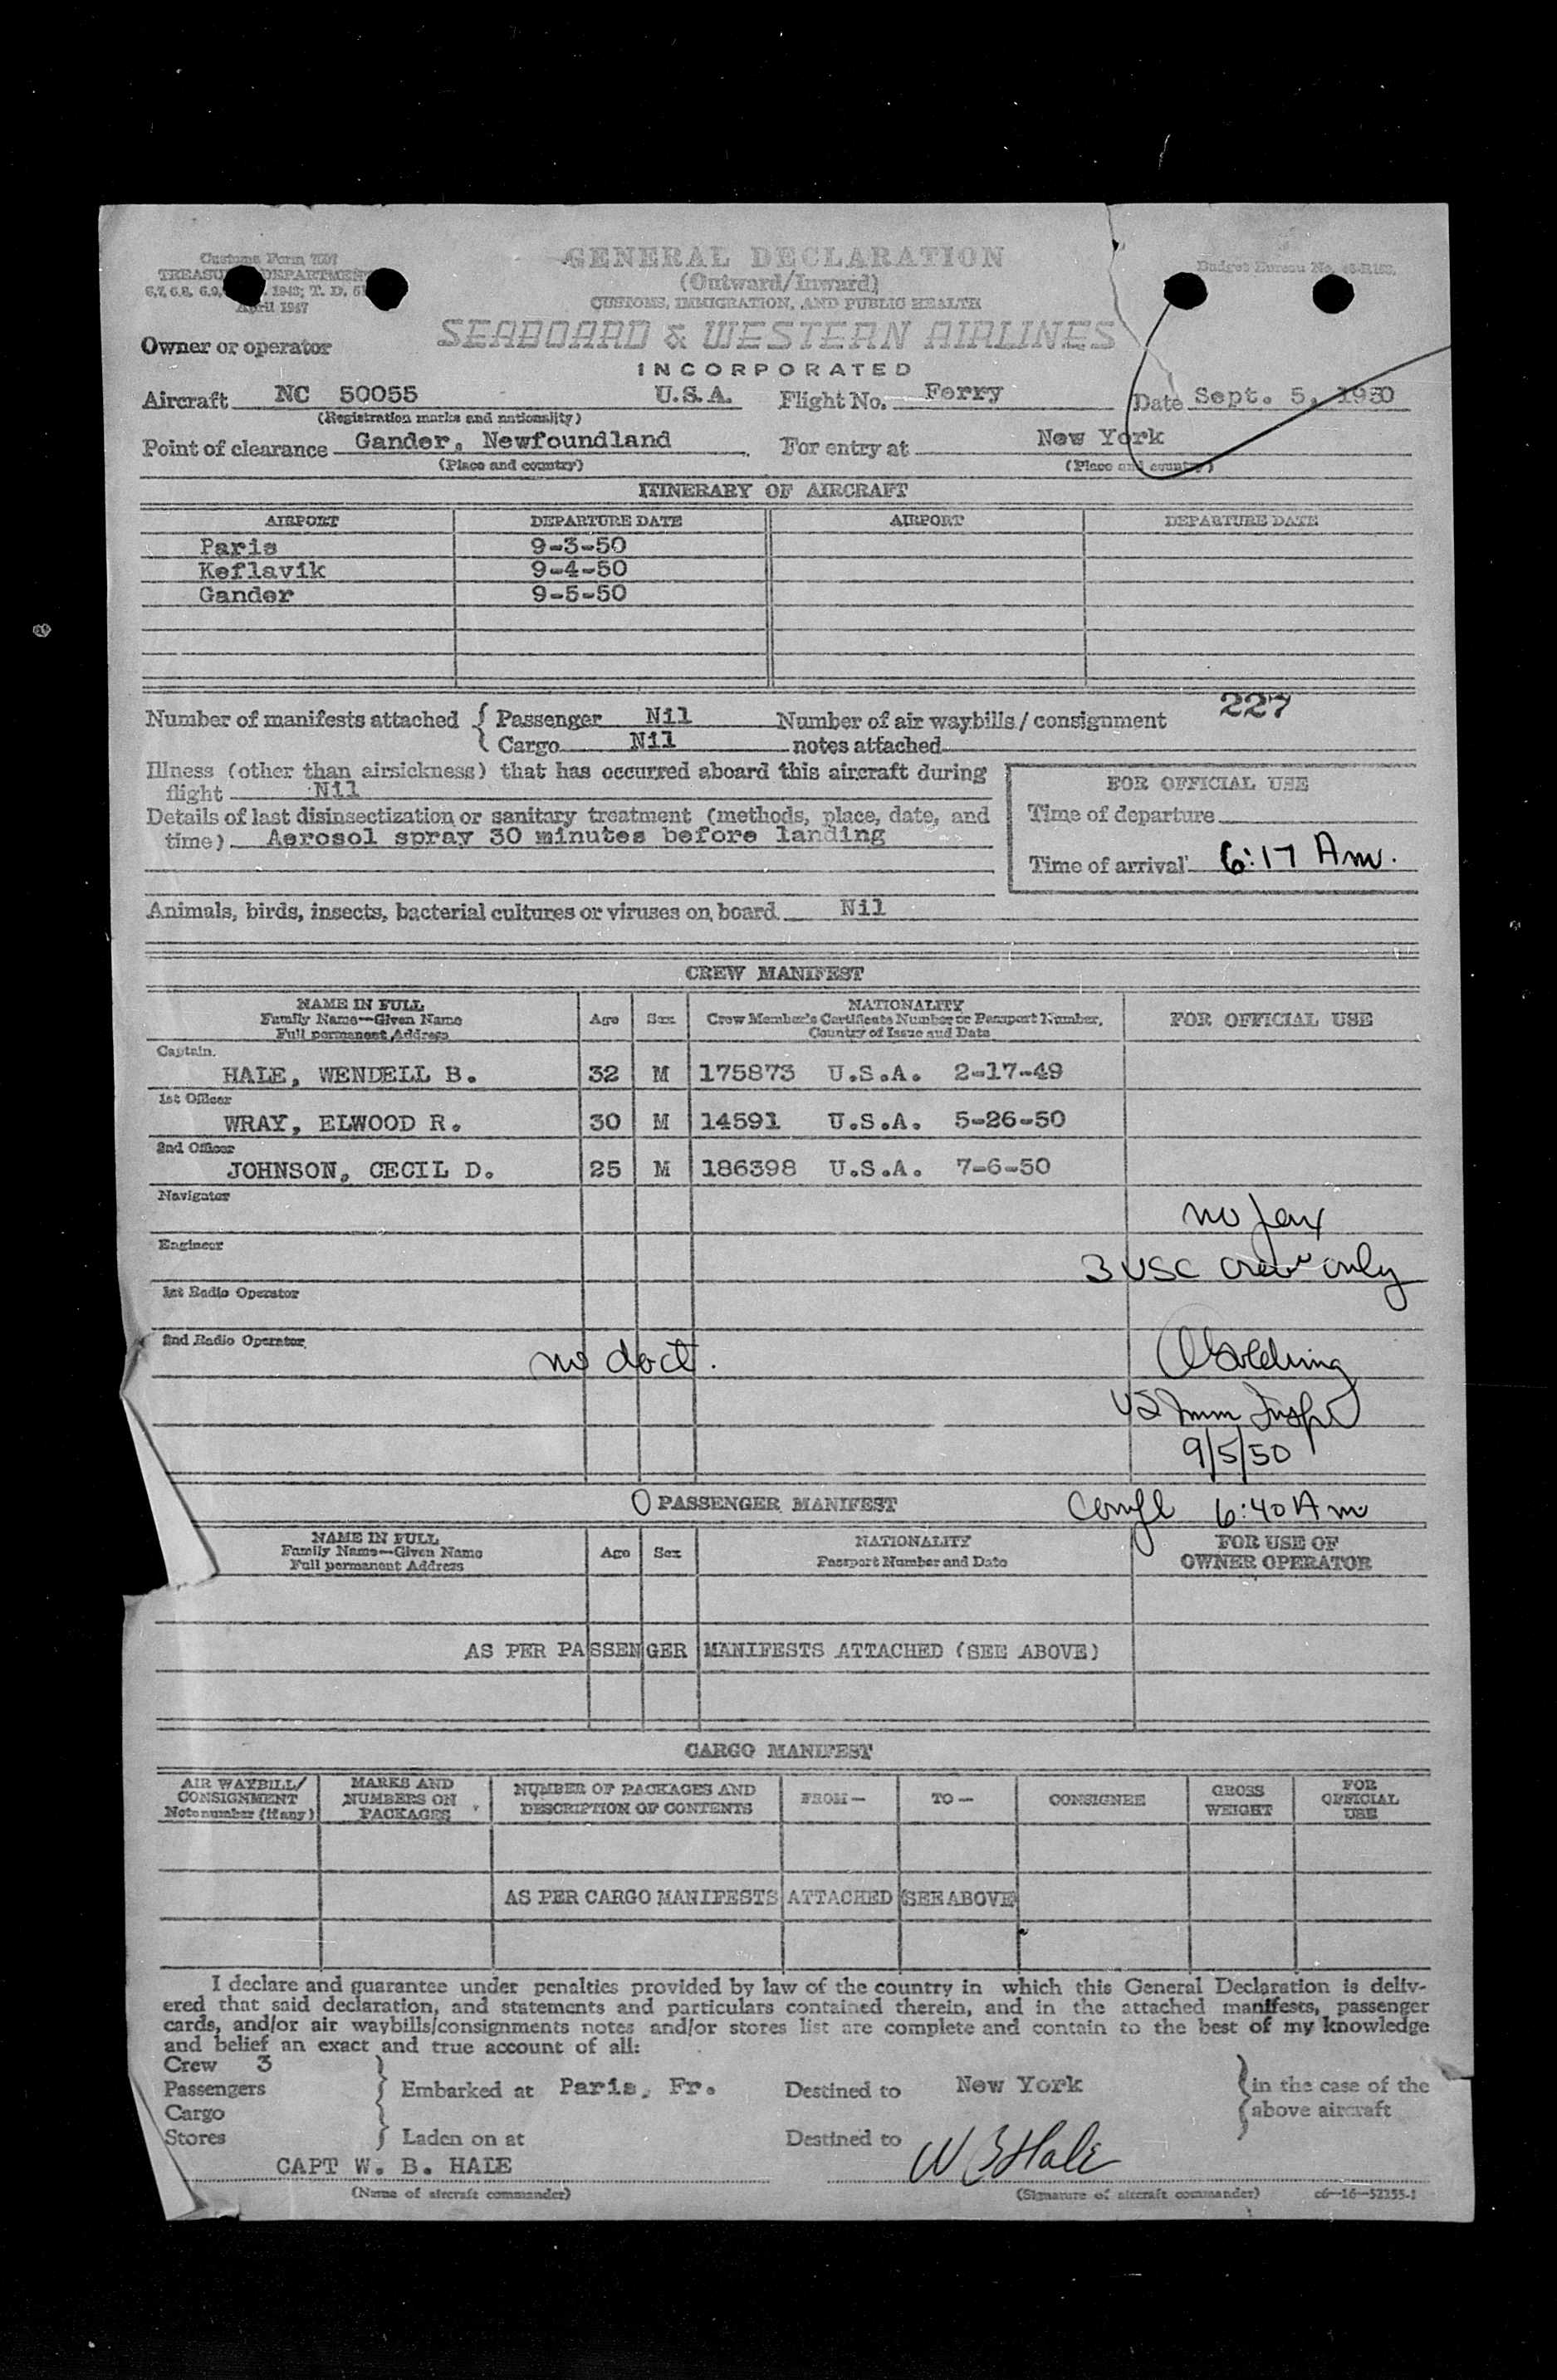 Customs Form 7507
TREASURY DEPARTMENT
April 1947
GENERAL DECLARATION
(Outward/Inward)
CUSTOMS, IMMIGRATION, AND PUBLIC HEALTH
Budget Bureau No.
SEABOARD & WESTERN AIRLINES
INCORPORATED
Owner or operator
Aircraft NC 50055 U.S.A. Flight No. Ferry Date Sept. 5, 1950
(Registration marks and nationality)
Point of clearance Gander, Newfoundland For entry at New York
(Place and country) (Place and country)
ITINERARY OF AIRCRAFT
AIRPORT DEPARTURE DATE AIRPORT DEPARTURE DATE
Paris 9-3-50
Keflavik 9-4-50
Gander 9-5-50
227
Number of manifests attached { Passenger Nil Number of air waybills/consignment
Cargo Nil notes attached
Illness (other than airsickness) that has occurred aboard this aircraft during
flight Nil
Details of last disinsectization or sanitary treatment (methods, place, date, and
time) Aerosol spray 30 minutes before landing
FOR OFFICIAL USE
Time of departure
Time of arrival 6:17 Am.
Animals, birds, insects, bacterial cultures or viruses on board Nil
CREW MANIFEST
NAME IN FULL
Family Name—Given Name
Full permanent Address
Age Sex
NATIONALITY
Crew Member's Certificate Number or Passport Number,
Country of Issue and Date
FOR OFFICIAL USE
Captain.
HALE, WENDELL B. 32 M 175873 U.S.A. 2-17-49
1st Officer
WRAY, ELWOOD R. 30 M 14591 U.S.A. 5-26-50
2nd Officer
JOHNSON, CECIL D. 25 M 186398 U.S.A. 7-6-50
Navigator
no pax
Engineer
3 USC crew only
1st Radio Operator
2nd Radio Operator
no doct.
US Imm Inspr
9/5/50
O PASSENGER MANIFEST
Compl 6:40 Am
NAME IN FULL
Family Name—Given Name
Full permanent Address
Age Sex
NATIONALITY
Passport Number and Date
FOR USE OF
OWNER OPERATOR
AS PER PASSENGER MANIFESTS ATTACHED (SEE ABOVE)
CARGO MANIFEST
AIR WAYBILL/
CONSIGNMENT
Note number (if any)
MARKS AND
NUMBERS ON
PACKAGES
NUMBER OF PACKAGES AND
DESCRIPTION OF CONTENTS
FROM— TO— CONSIGNEE
GROSS
WEIGHT
FOR
OFFICIAL
USE
AS PER CARGO MANIFESTS ATTACHED SEE ABOVE
I declare and guarantee under penalties provided by law of the country in which this General Declaration is deliv-
ered that said declaration, and statements and particulars contained therein, and in the attached manifests, passenger
cards, and/or air waybills/consignments notes and/or stores list are complete and contain to the best of my knowledge
and belief an exact and true account of all:
Crew 3
Passengers } Embarked at Paris, Fr. Destined to New York } in the case of the
Cargo above aircraft
Stores } Laden on at Destined to
CAPT W. B. HALE W B Hale
(Name of aircraft commander) (Signature of aircraft commander) c6—16—52155-1